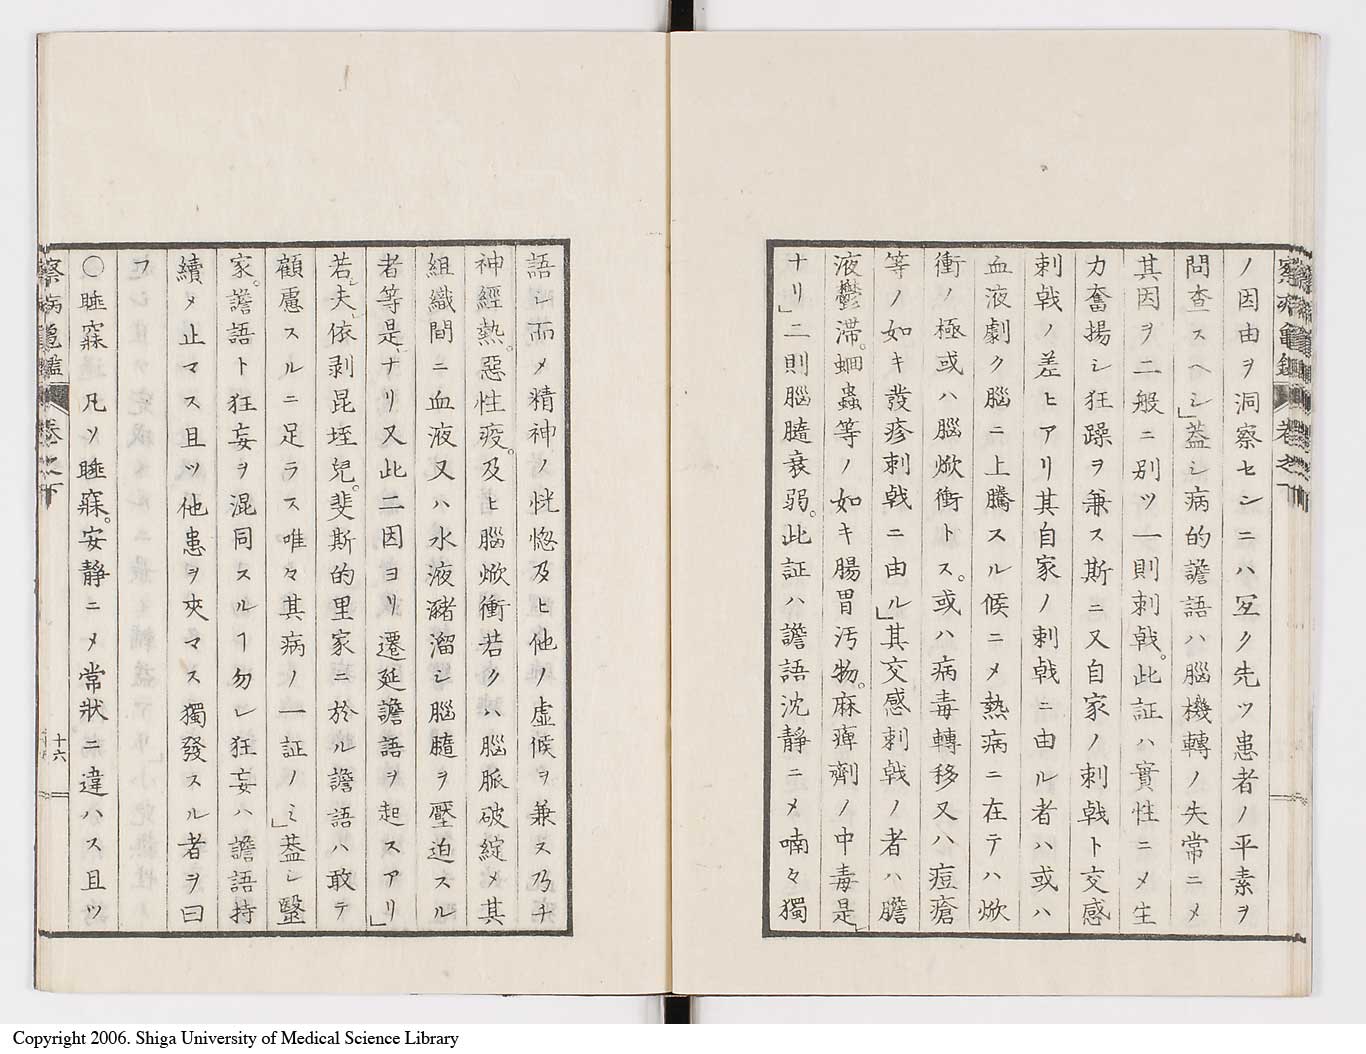 ノ因由ヲ洞察センニハ冝ク先ツ患者ノ平素ヲ
問査スヘシ」蓋シ病的譫語ハ腦機轉ノ失常ニメ
其因ヲ二般ニ別ツ一則刺戟。此証ハ實性ニメ生
力奮揚シ狂躁ヲ兼ス斯ニ又自家ノ刺戟ト交感
刺戟ノ差ヒアリ其自家ノ刺戟ニ由ル者ハ或ハ
血液劇ク腦ニ上騰スル候ニメ熱病ニ在テハ焮
衝ノ極或ハ腦焮衝トス。或ハ病毒轉移又ハ痘瘡
等ノ如キ發疹刺戟ニ由ル」其交感刺戟ノ者ハ膽
液鬱滞。蛔蟲等ノ如キ腸胃汚物。麻痺劑ノ中毒是
ナリ」二則腦髓衰弱。此証ハ譫語沈靜ニメ喃々獨
語シ而メ精神ノ恍惚及ヒ他ノ虚候ヲ兼ヌ乃チ
神經熱。惡性疫。及ヒ腦焮衝若クハ腦脈破綻メ其
組織間ニ血液又ハ水液瀦溜シ腦髓ヲ壓迫スル
者等是ナリ又此二因ヨリ遷延譫語ヲ起スアリ」
若夫依剥昆垤兒。斐斯的里家ニ於ル譫語ハ敢テ
顧慮スルニ足ラス唯々其病ノ一証ノミ」葢シ毉
家。譫語ト狂妄ヲ混同スルヿ勿レ狂妄ハ譫語持
續メ止マス且ツ他患ヲ夾マス獨發スル者ヲ曰
フ
〇睡寐 凡ソ睡寐。安靜ニメ常狀ニ違ハス且ツ
察病龜鑑 卷之下
十六
Copyright 2006. Shiga University of Medical Science Library